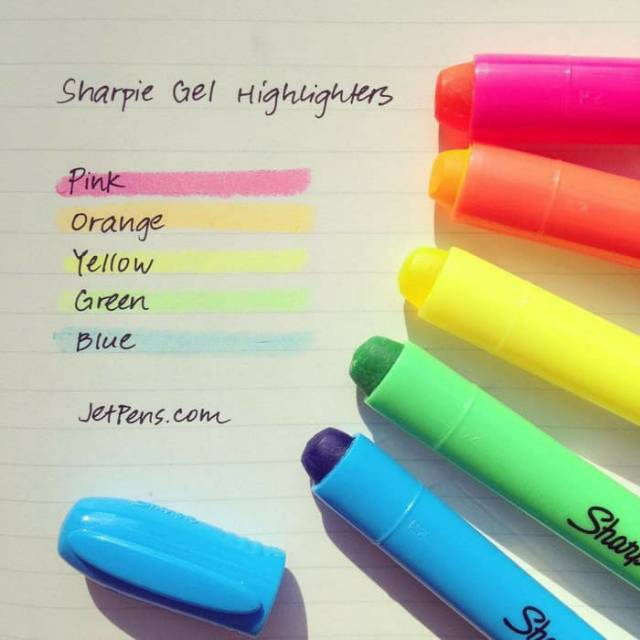 Sharpie Gel Highlighters
Pink
Orange
Yellow
Green
Blue
JetPens.com